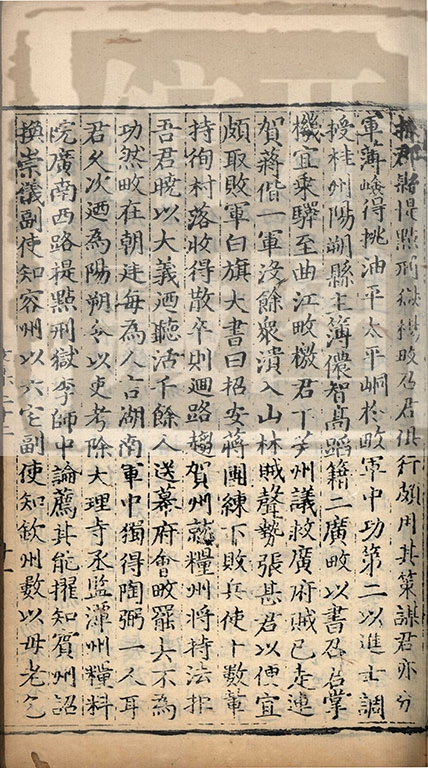 郡縣提點刑獄楊畋召君俱行頗用其策謀君亦分
軍薄嶢得挑油平太平峒於畋軍中功第二以進士調
授桂州陽朔縣主簿儂智高蹈籍二廣畋以書召君掌
機宜乘驛至曲江畋檄君下英州議救廣府賊已走連
賀蔣偕一軍沒餘眾潰入山林賊聲勢張甚君以便宜
頗取敗軍白旗大書曰招安蔣團練下敗兵使十數輩
持徇村落收得散卒則迴路趨賀州就糧州將持法拒
吾君曉以大義迺聽活千餘人送幕府會畋罷去不為
功然畋在朝廷每為人言湖南軍中獨得陶弼一人耳
君久次迺為陽朔令以吏考除大理寺丞監潭州糧料
院廣南西路提點刑獄李師中論薦其能擢知賓州詔
換崇儀副使知容州以六宅副使知欽州數以母老乞